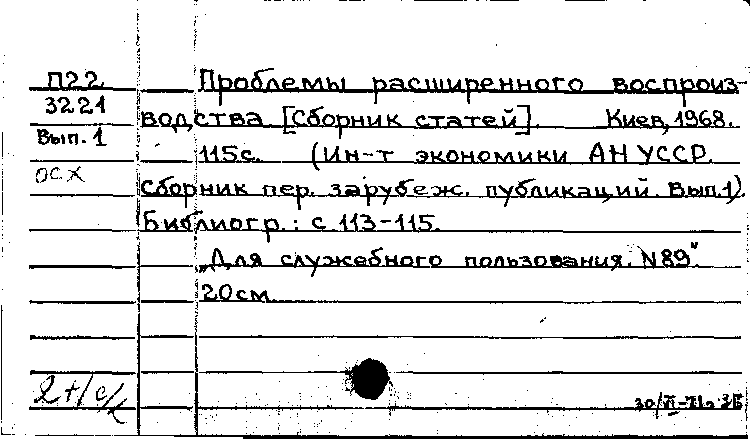 П22
3221
Вып. 1
ОСХ
Проблемы расширенного воспроиз-
водства [Сборник статей]. Киев, 1968.
115с. (Ин-т экономики АН УССР.
Сборник пер. зарубеж. публикаций. Вып.1).
Библиогр.: с. 113-115.
„Для служебного пользования. N89".
20см